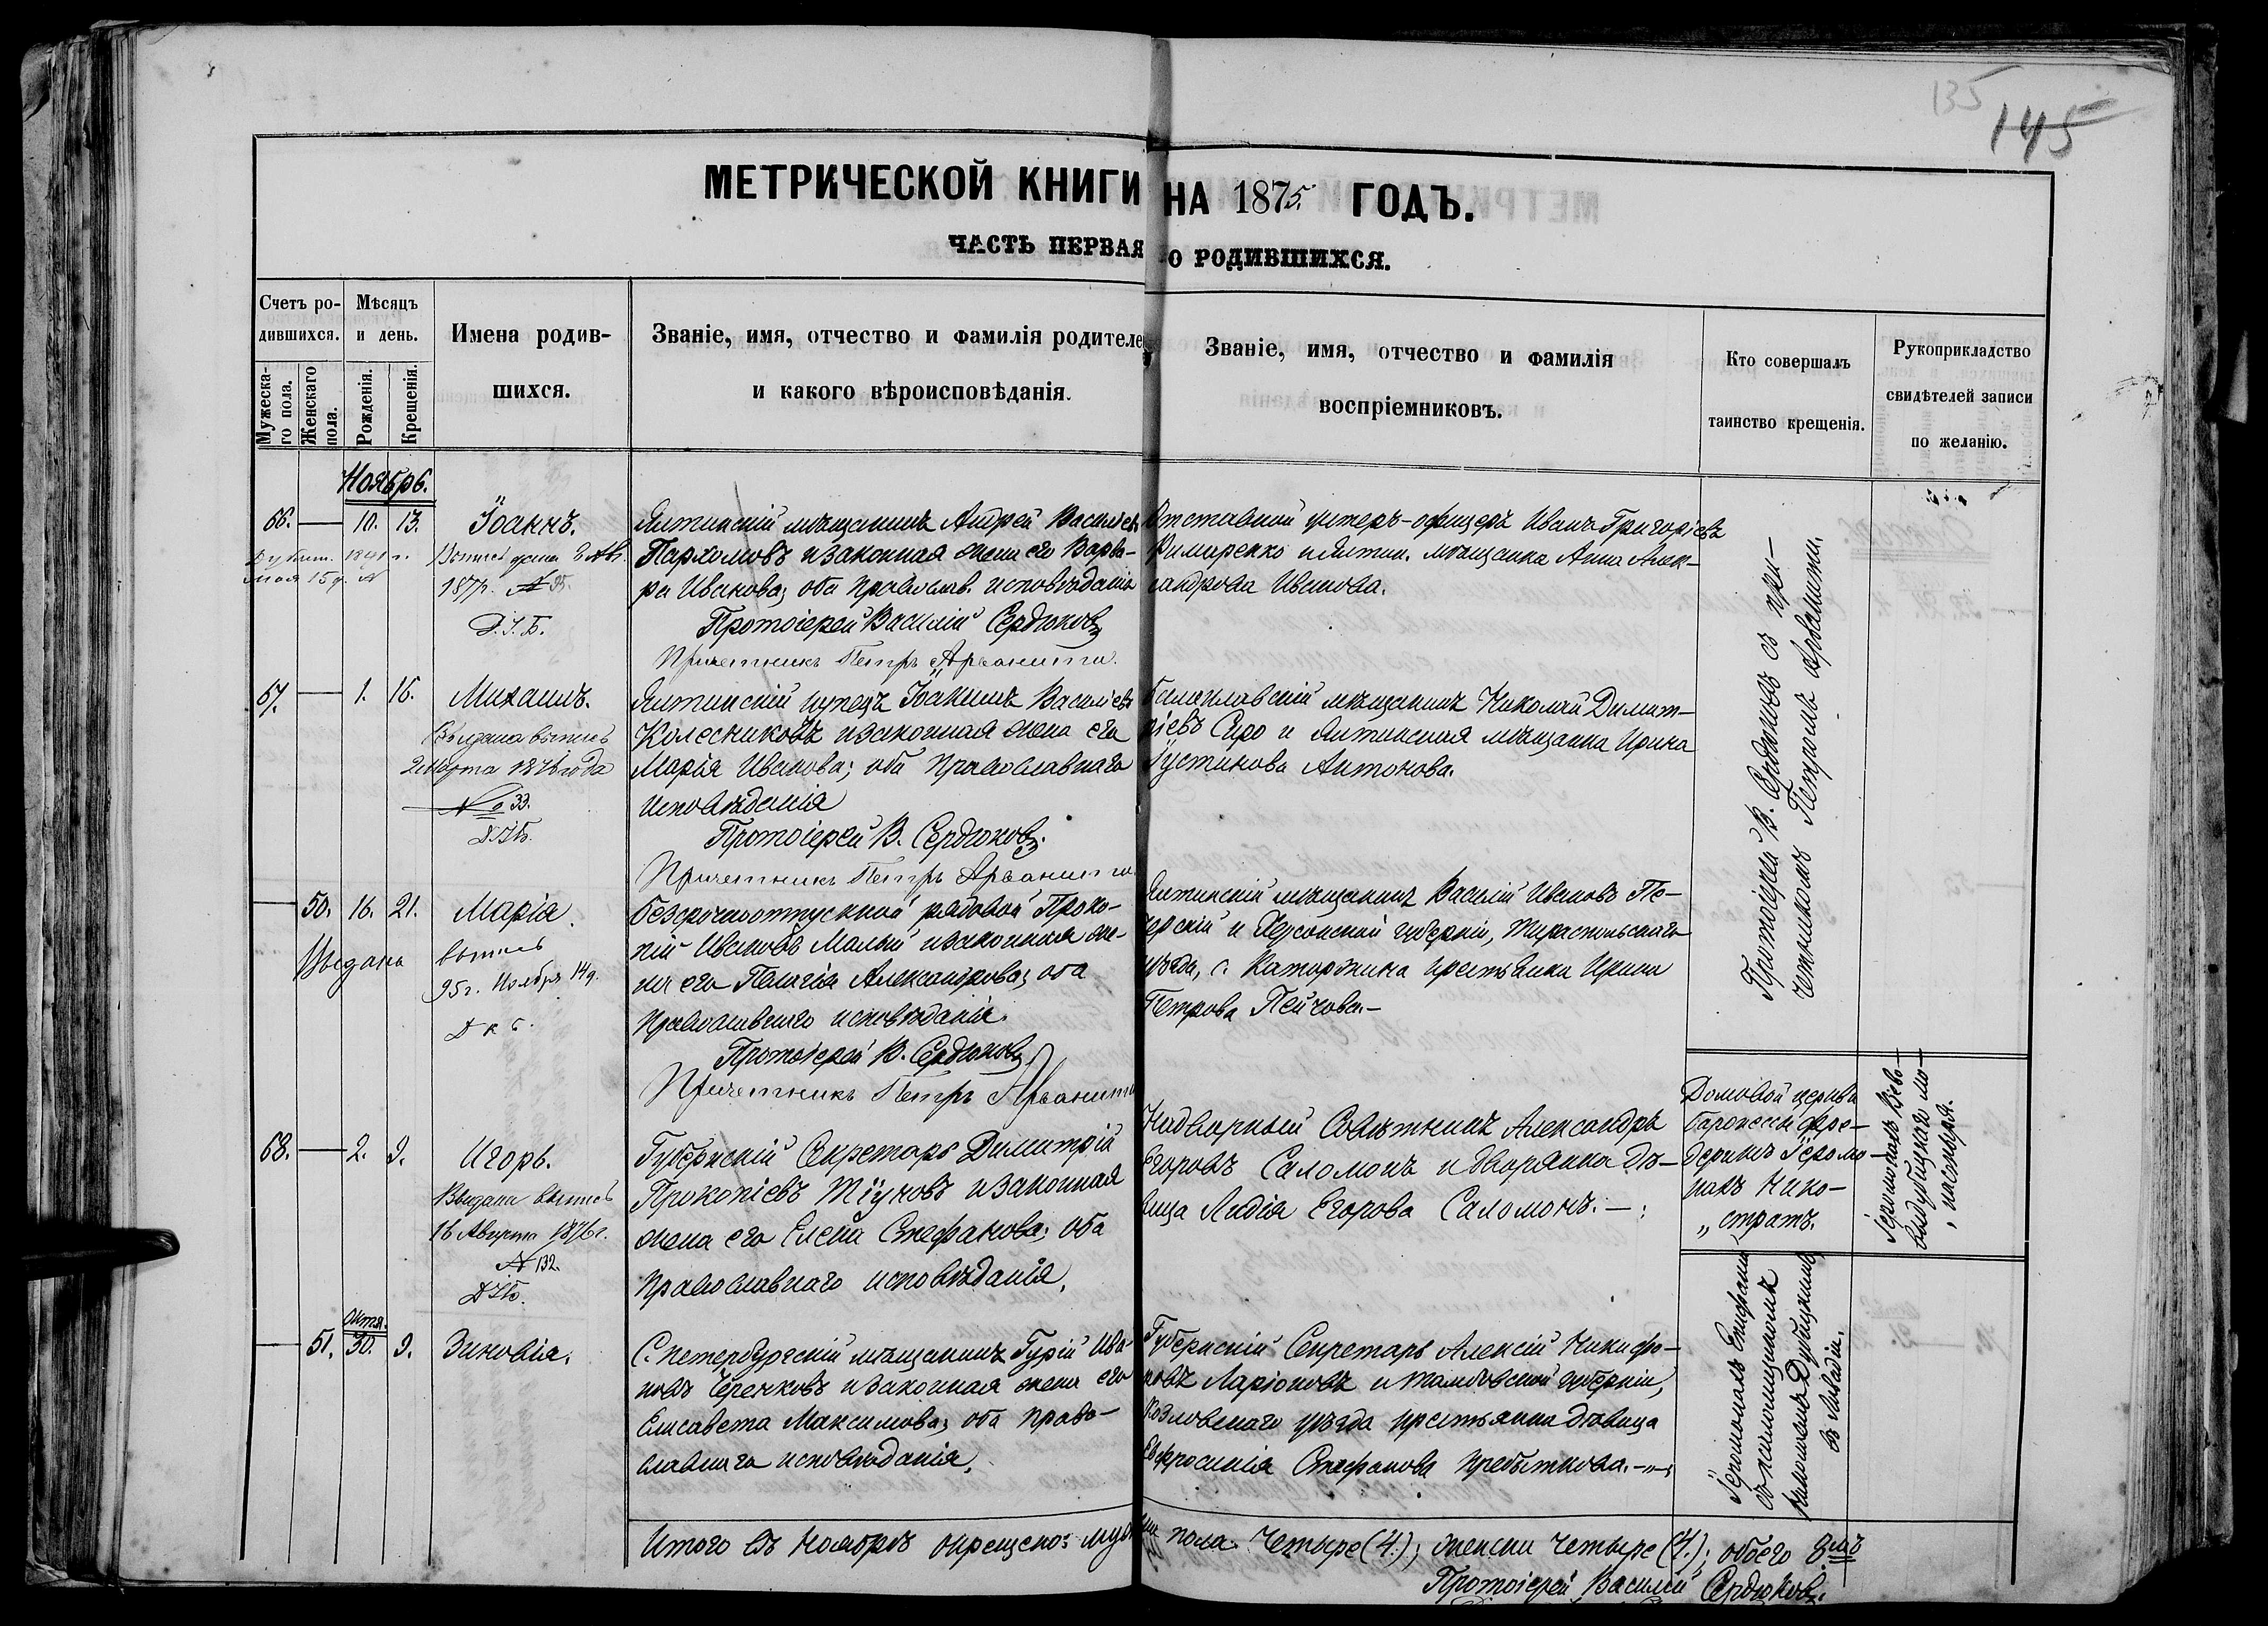 135
145
МЕТРИЧЕСКОЙ КНИГИ НА 1875. ГОДЪ.
ЧАСТЬ ПЕРВАЯ О РОДИВШИХСЯ.
Счетъ ро-
дившихся.
Мужеска-
го пола.
Женскаго
пола.
Мѣсяцъ
и день.
Рожденія.
Крещенія.
Имена родив-
шихся.
Званіе, имя, отчество и фамилія родителе
и какого вѣроисповѣданія.
Званіе, имя, отчество и фамилія
воспріемниковъ.
Кто совершалъ
таинство крещенія.
Рукоприкладство
свидѣтелей записи
по желанію.
Ноябрь.
66. — 10. 13. Іоаннъ.
1877г. № 35.
Д.І.Б.
Ялтинскій мѣщанинъ Андрей Васильев
Пархомовъ и законная жена его Варва-
ра Иванова; оба православ. исповѣданія
Протоіерей Василій Сердюковъ
Причетникъ Петръ Арванити.
Отставной унтеръ-офицеръ Иванъ Григоріевъ
Римаренко и Ялтин. мѣщанка Анна Алек-
сандрова Иванова.
67. — 1. 16. Михаилъ.
Выдана выпись
2 Марта 1876 года
№ 33.
Д.І.Б.
Ялтинскій купецъ Іоакимъ Васильевъ
Колесниковъ и законная жена его
Марія Иванова; оба православнаго
исповѣданія
Протоіерей В. Сердюковъ.
Причетникъ Петръ Арванити.
Балаклавскій мѣщанинъ Николай Димит-
ріевъ Сиро и Ялтинская мѣщанка Ирина
Іустинова Антонова.
Протоіерей В. Сердюковъ съ при-
четникомъ Петромъ Арванити.
— 50. 16. 21. Марія.
Выдана выпись
95г. Ноября 14д.
Безсрочноотпускной рядовой Проко-
пій Ивановъ Малый и законная же-
на его Пелагія Александрова; оба
православнаго исповѣданія.
Протоіерей В. Сердюковъ
Причетникъ Петръ Арванити
Ялтинскій мѣщанинъ Василій Ивановъ Пе-
черскій и Херсонской губерніи, Тираспольскаго
уѣзда, с. Каторжина крестьянка Ирина
Петрова Пейчова.—
68. — 2. 9. Игорь.
Выдана выпись
16 Августа 1876г.
№ 132.
Д.І.Б.
Губернскій Секретарь Димитрій
Прокопіевъ Тіуновъ и законная
жена его Елена Стефанова; оба
православнаго исповѣданія.
Надворный Совѣтникъ Александръ
Егоровъ Саломонъ и дворянка дѣ-
вица Лидія Егорова Саломонъ.—
Домовой церкви
Баронессы Фре-
дериксъ Іеромо-
нахъ Нико-
стратъ.
Іеромонахъ Кіево-
выдубицкаго мо-
настыря.
— 51. Октя. 30. 9. Зиновія.
С.Петербургскій мѣщанинъ Гурій Ива-
новъ Черенковъ и законная жена его
Елисавета Максимова; оба право-
славнаго исповѣданія.
Губернскій Секретарь Алексій Никифо-
ровъ Ларіоновъ и Тамбовской губерніи,
Козловскаго уѣзда крестьянка дѣвица
Евфросинія Стефанова Пребыткова.—
Іеромонахъ Епифаній
съ псаломщикомъ
Дубицкимъ
въ Ливадіи.
Итого въ Ноябрѣ окрещено: муж пола Четыре (4.); женска Четыре (4.); обоего 8мь
Протоіерей Василій Сердюковъ.